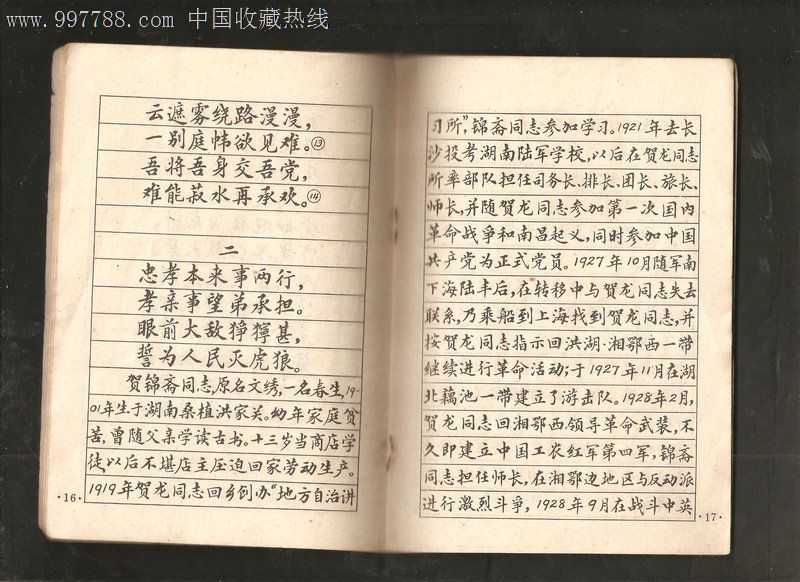 www.997788.com 中国收藏热线
云遮雾绕路漫漫，
一别庭帏欲见难。⑬
吾将吾身交吾党，
难能菽水再承欢。⑭
二
忠孝本来事两行，
孝亲事望弟承担。
眼前大敌狰狞甚，
誓为人民灭虎狼。
贺锦斋同志，原名文绣，一名春生，19
01年生于湖南桑植洪家关。幼年家庭贫
苦，曾随父亲学读古书。十三岁当商店学
徒，以后不堪店主压迫回家劳动生产。
1919年贺龙同志回乡创办“地方自治讲
·16·
习所”，锦斋同志参加学习。1921年去长
沙投考湖南陆军学校，以后在贺龙同志
所率部队担任司务长、排长、团长、旅长、
师长，并随贺龙同志参加第一次国内
革命战争和南昌起义，同时参加中国
共产党为正式党员。1927年10月随军南
下海陆丰后，在转移中与贺龙同志失去
联系，乃乘船到上海找到贺龙同志，并
按贺龙同志指示回洪湖·湘鄂西一带
继续进行革命活动；于1927年11月在湖
北藕池一带建立了游击队。1928年2月，
贺龙同志回湘鄂西领导革命武装，不
久即建立中国工农红军第四军，锦斋
同志担任师长，在湘鄂边地区与反动派
进行激烈斗争，1928年9月在战斗中英
·17·